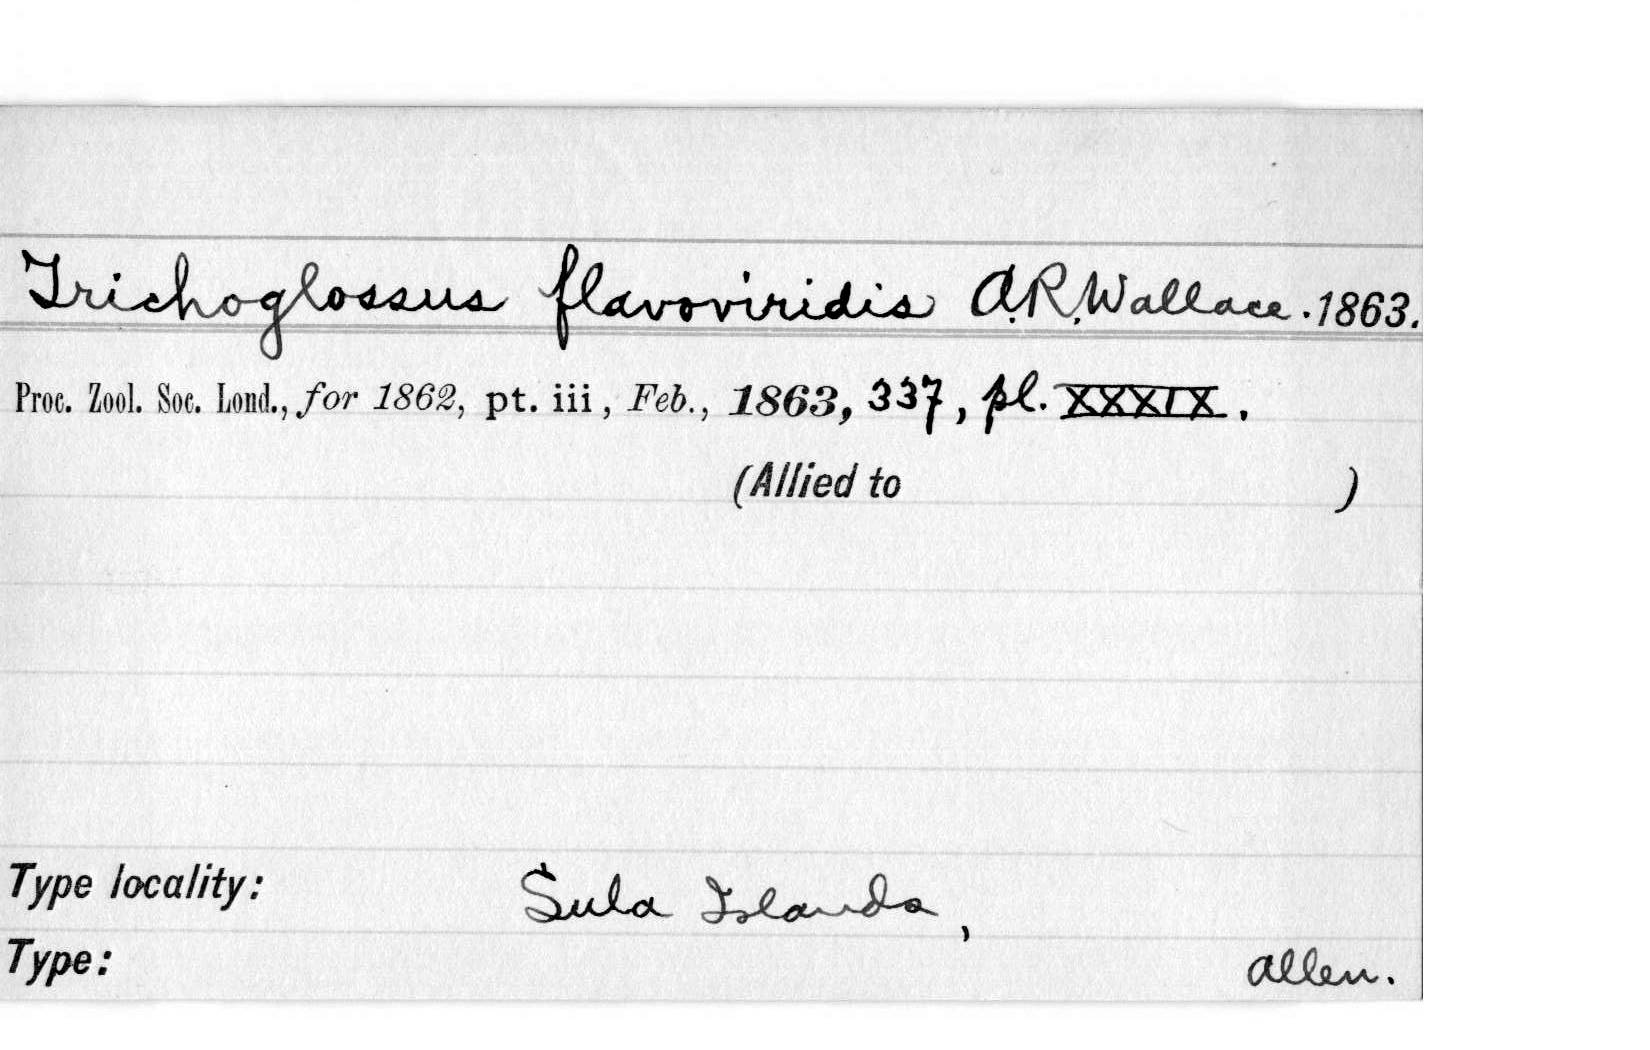 Trichoglossus flavoviridis A.R.Wallace.1863.
Proc. Zool. Soc. Lond., for 1862, pt. iii, Feb., 1863, 337, pl. XXXIX.
(Allied to )
Type locality: Sula Islands,
Type: Allen.